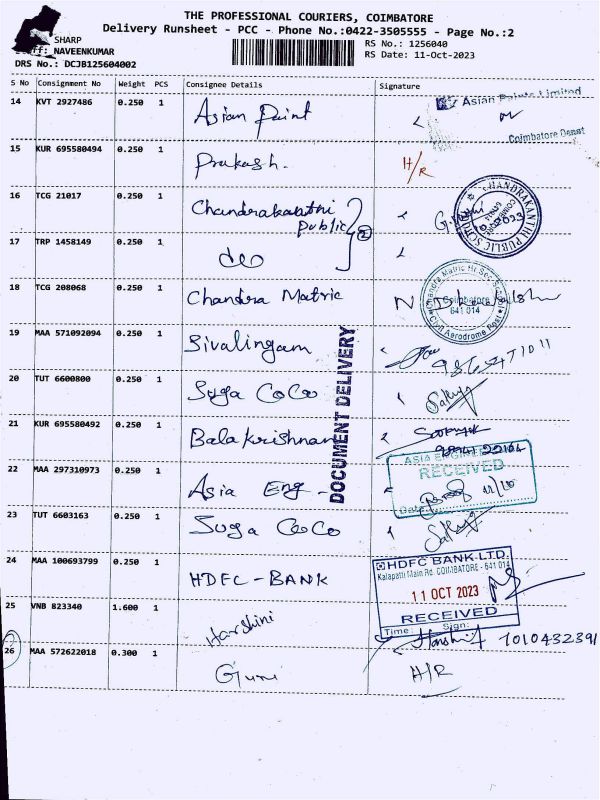 THE PROFESSIONAL COURIERS, COIMBATORE
Delivery Runsheet - PCC - Phone No.:0422-3505555 - Page No.:2
SHARP
NAVEENKUMAR
RS No.: 1256040
DRS No.: DCJB125604002
RS Date: 11-Oct-2023
S No Consignment No Weight PCS Consignee Details Signature
14 KVT 2927486 0.250 1 Asian Paint
Asian Paints Limited
Coimbatore Depot
15 KUR 695580494 0.250 1 Prakash. H/R
16 TCG 21017 0.250 1 Chandrakanthi public 2
CHANDRAKANTHI PUBLIC SCHOOL
17 TRP 1458149 0.250 1 do
18 TCG 208068 0.250 1 Chandra Matric
Chandra Matric Hr Sec School
Coimbatore
641 014
Civil Aerodrome Post
19 MAA 571092094 0.250 1 Sivalingam
DOCUMENT DELIVERY
20 TUT 6600800 0.250 1 Suga CoCo
21 KUR 695580492 0.250 1 Balakrishnan
22 MAA 297310973 0.250 1 Asia Eng-
RECEIVED
Date: 11/10
23 TUT 6603163 0.250 1 Suga CoCo
24 MAA 100693799 0.250 1 HDFC-BANK
HDFC BANK LTD.
Kalapatti Main Rd. COIMBATORE - 641 014
11 OCT 2023
RECEIVED
Time: Sign:
25 VNB 823340 1.600 1 Harshini 7010432391
26 MAA 572622018 0.300 1 Guru H/R